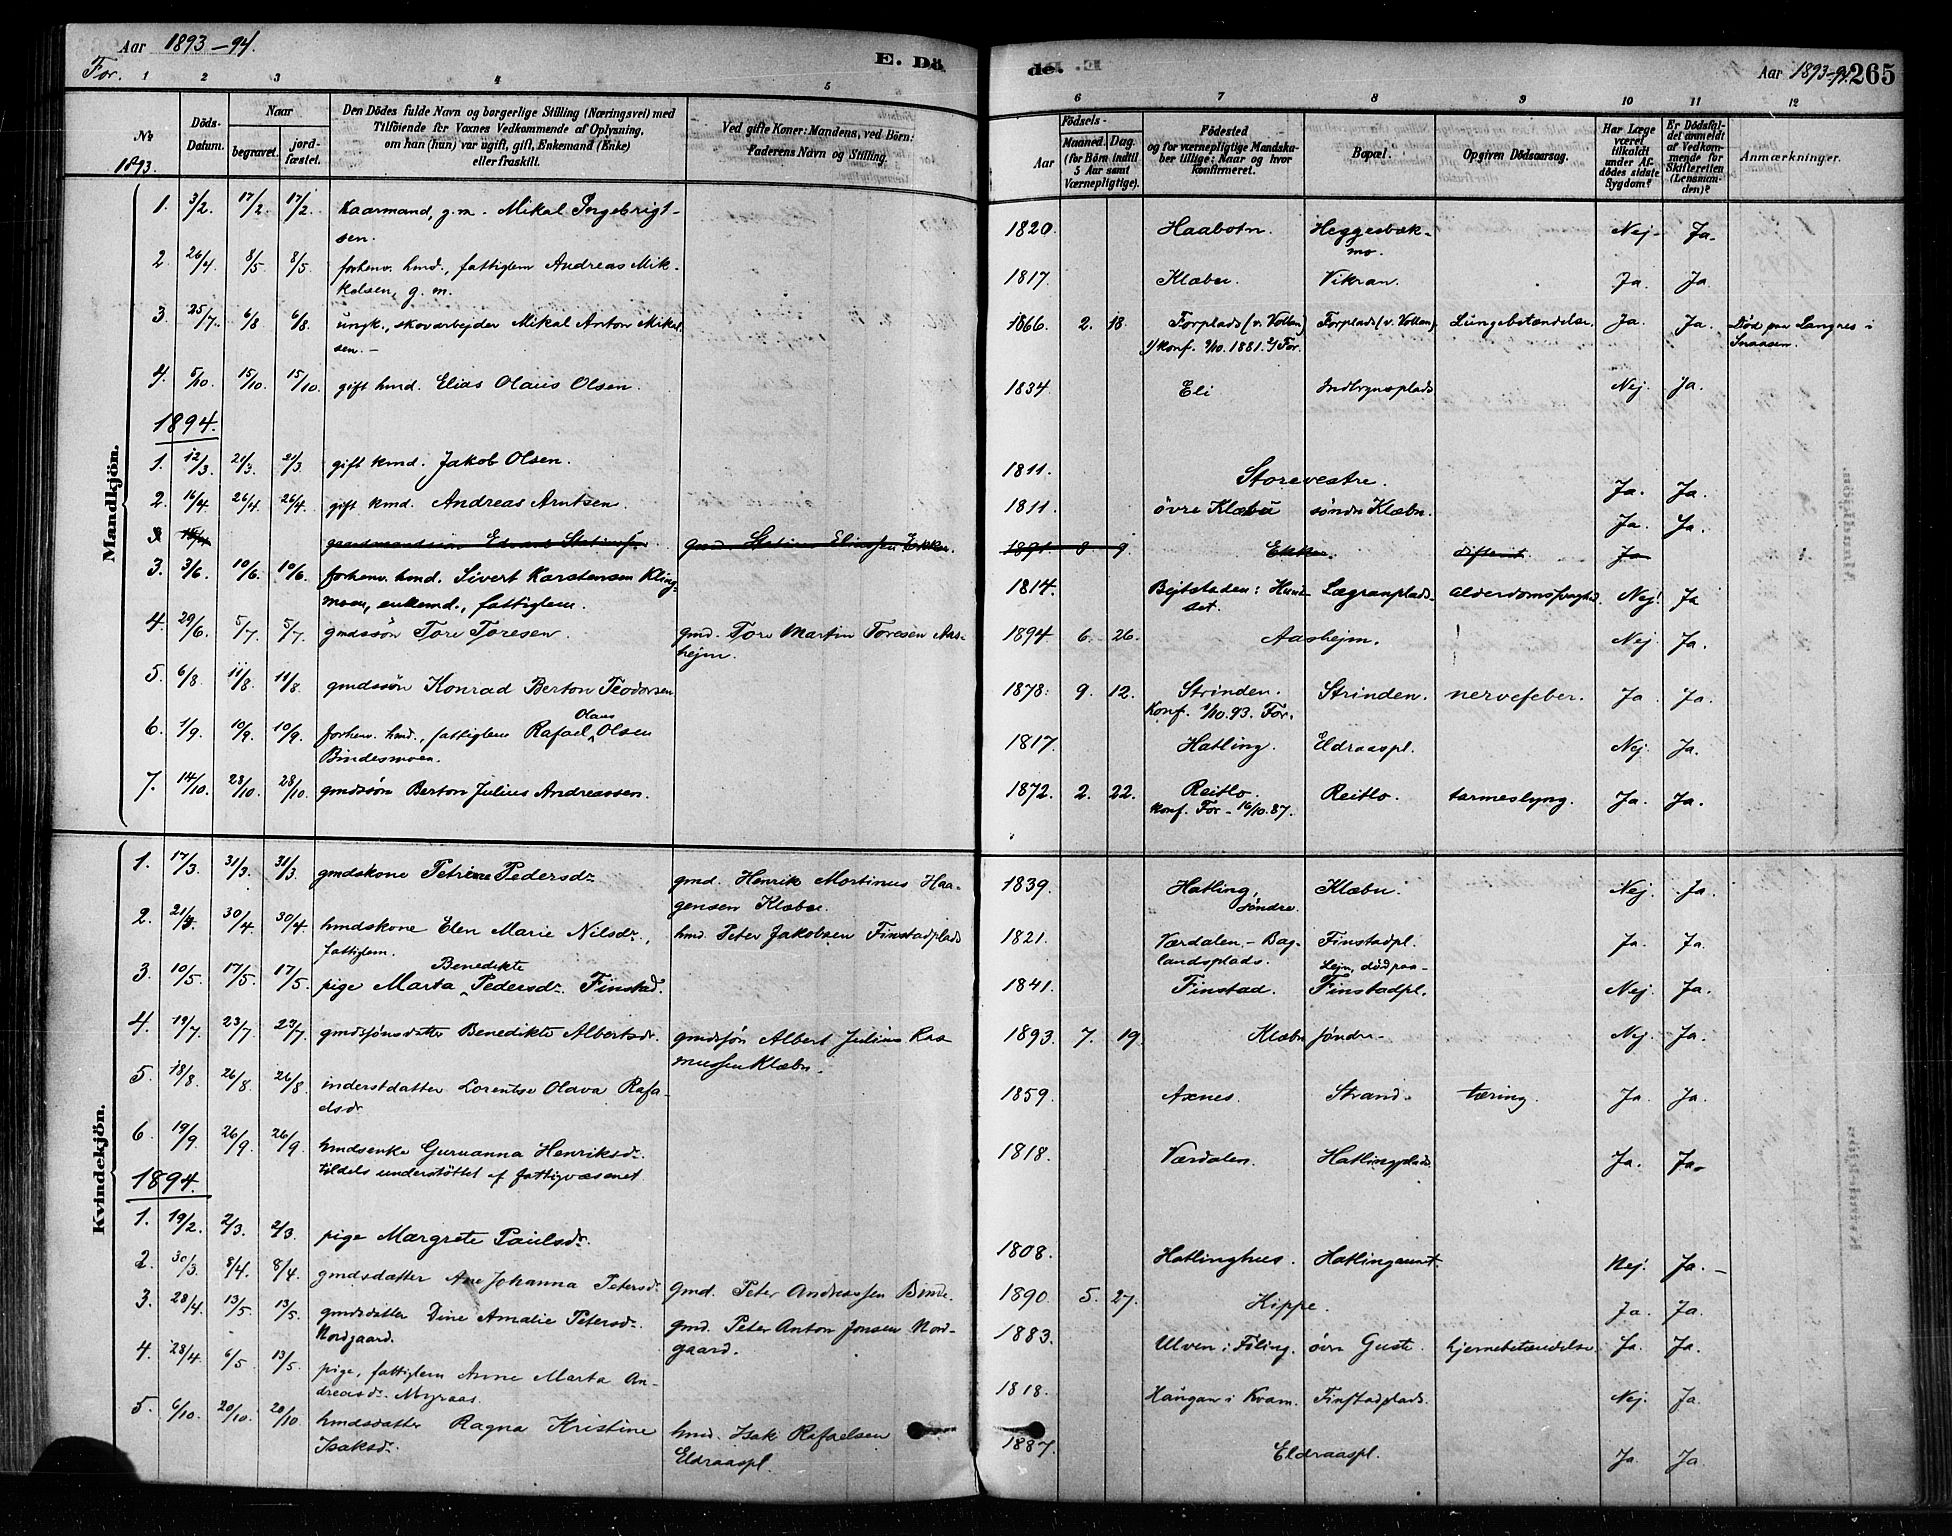 Aar 1893-94.
For.
E. Dö
de.
Aar 1893-94. 265
1 2 3 4 5 6 7 8 9 10 11 12
No
1893.
Döds-
Datum.
Naar
begravet.
jord-
fæstet.
Den Dödes fulde Navn og borgerlige Stilling (Næringsvei) med
Tilföiende for Voxnes Vedkommende af Oplysning,
om han (hun) var ugift, gift, Enkemand (Enke)
eller fraskilt.
Ved gifte Koner: Mandens, ved Börn:
Faderens Navn og Stilling.
Födsels-
Aar
Maaned. Dag.
(for Börn indtil
5 Aar samt
Værnepligtige).
Födested
og for værnepligtige Mandska-
ber tillige: Naar og hvor
konfirmeret.
Bopæl.
Opgiven Dödsaarsag.
Har Læge
været
tilkaldt
under Af-
dödes sidste
Sygdom?
Er Dödsfal-
det anmeldt
af Vedkom-
mende for
Skifteretten
(Lensman-
den)?
Anmærkninger.
Mandkjön.
1. 3/2. 17/2. 17/2. Kaarmand, g.m. Mikal Ingebrigt-
sen. 1820. Haabotn. Heggesbæk-
mo. Nej. Ja.
2. 26/4 8/5 8/5. forhenv. hmd., fattiglem Andreas Mik-
kelsen, g.m. 1817. Klæbu. Vikran. Ja. Ja.
3. 25/7. 6/8 6/8. ungk., skovarbejder Mikal Anton Mikal-
sen. 1866. 2. 18. Forplads (v. Vollan) Forplads (v. Vollan). Lungebetændelse. Ja. Ja. Død paa Langnes i
1/ Konf. 9/10. 1881. 2/ For. Snaasen.
4. 5/10. 15/10. 15/10. gift hmd. Elias Olaus Olsen. 1834 Eli Indbrynsplads Nej. Ja.
1894.
1. 12/3. 21/3. 21/3. gift kmd. Jakob Olsen. 1811. Storevestre. Ja. Ja.
2. 16/4 26/4. 26/4. gift kmd. Andreas Arntsen. 1811. övre Klæbu söndre Klæbu. Ja. Ja.
3. gaardmandssön Edvard gmd. Eliassen Ekker. 1891 8 9 Ekker. difterit Ja
3. 3/6. 10/6. 10/6. forhenv. hmd. Sivert Karstensen Kling-
moen, enkemd., fattiglem. 1814. Bejtstaden: Hund-
set. Lægranplads. alderdomssvaghed. Nej! Ja
4. 29/6. 5/7. 5/7. gmdssön Tore Toresen. gmd. Tore Martin Toresen Aas-
hejm. 1894 6. 26. Aashejm. Nej. Ja.
5. 6/8. 11/8. 11/8. gmdssön Konrad Berton Teodorsen 1878. 9. 12. Strinden. Strinden. nervefeber. Ja Ja.
Konf. 1/10. 93. For.
6. 1/9. 10/9. 10/9. forhenv. hmd., fattiglem Rafael Olaus Olsen
Bindesmoen. 1817. Hatling. Eldraaspl. Nej. Ja.
7. 14/10. 28/10. 28/10. gmdssön Berton Julius Andreassen. 1872. 2. 22. Reitlo. Reitlo. tarmeslyng. Ja. Ja.
Konf. For - 16/10. 87.
Kvindekjön.
1. 17/3. 31/3. 31/3. gmdskone Petrine Pedersdr. gmd. Henrik Mortinus Haa-
gensen Klæbu. 1839. Hatling, söndre. Klæbu. Nej. Ja.
2. 21/4. 30/4 30/4. hmdskone Elen Marie Nilsdr.,
fattiglem. hmd. Peter Jakobsen Finstadplads 1821. Værdalen. - Bag-
landsplads. Finstadpl. Ja. Ja.
3. 10/5. 17/5. 17/5. pige Marta Benedikte Pedersdr. Finstad. 1841. Finstad. Lejn, död paa
Finstadpl. Nej. Ja.
4. 19/7. 23/7 23/7. gmdssønsdatter Benedikte Albertsdr. gmdssøn Albert Julius Ras
mussen Klæbu. 1893. 7. 19. Klæbu søndre. Nej. Ja.
5. 18/8. 26/8. 26/8. inderstdatter Lorentse Olava Rafa-
elsdr. 1859. Axnes. Strand. tæring. Ja. Ja.
6. 19/9. 26/9 26/9. hmdsenke Guruanna Henriksdr.
tildels understöttet af fattigvæsenet 1818. Værdalen. Hatlingplads. Ja. Ja.
1894.
1. 19/2. 2/3. 2/3. pige Margrete Paulsdr. 1808. Hatlinghus. Hatlingaunet. Nej. Ja.
2. 30/3. 8/4. 8/4. gmdsdatter Ane Johanna Petersdr. gmd. Peter Andreassen Binde. 1890. 5. 27. Hippe. Ja. Ja.
3. 28/4. 13/5. 13/5. gmdsdatter Dine Amalie Petersdr.
Nordgaard. gmd. Peter Anton Jonsen Nord-
gaard. 1883. Ulven i Føling. övre Guste. hjernebetændelse. Ja. Ja.
4. 28/4. 6/5. 13/5. pige, fattiglem Anne Marta An-
dreasdr. Myraas. 1818. Haugan i Kvam. Finstadplads. Nej. Ja
5. 6/10. 20/10. 20/10. hmdsdatter Ragna Kristine
Isaksdr. hmd. Isak Rafaelsen
Eldraaspl. 1887. Eldraaspl. Ja. Ja